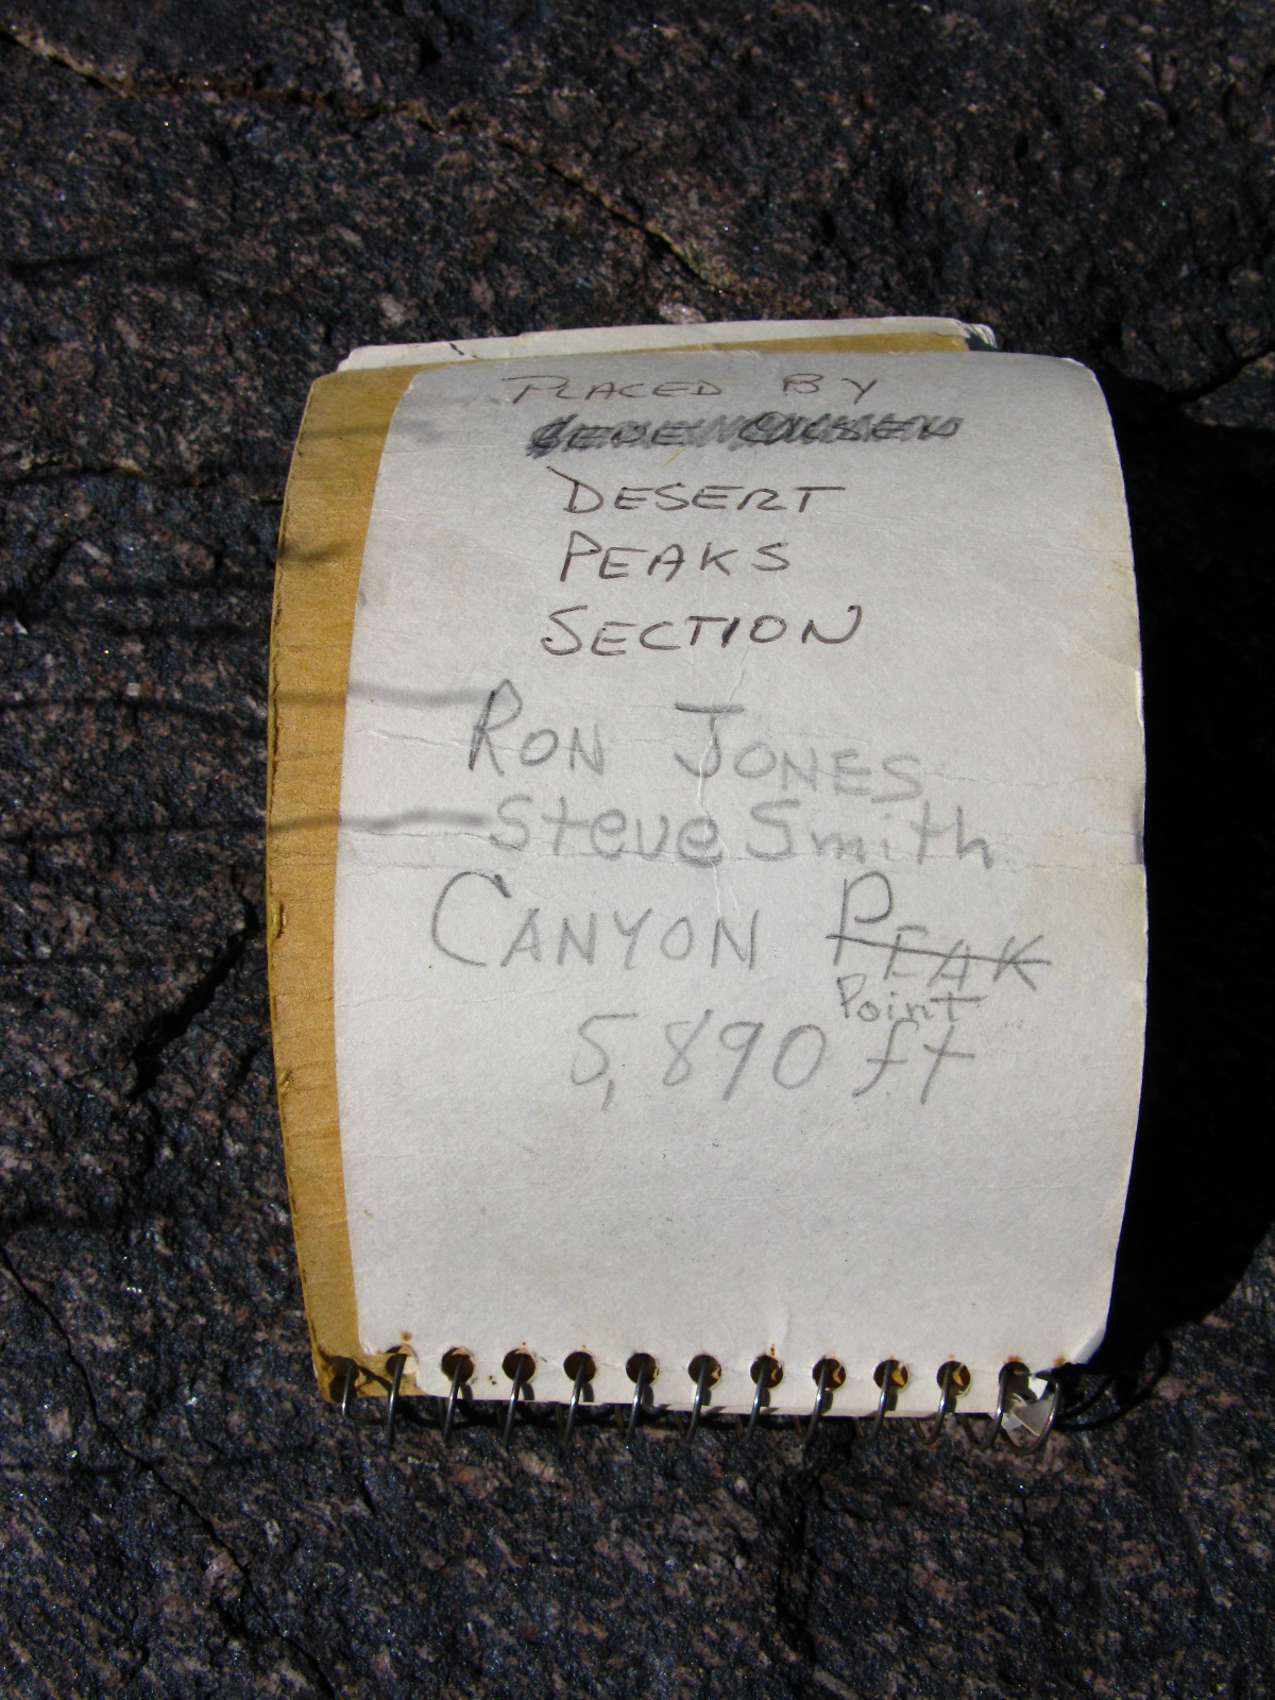 PLACED BY
DESERT
PEAKS
SECTION
RON JONES
Steve Smith
CANYON PEAK
Point
5,890 ft